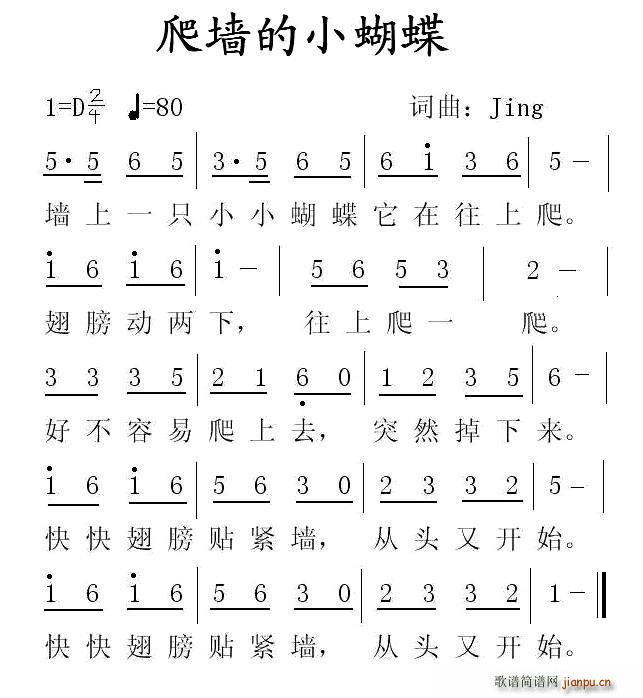 爬墙的小蝴蝶
1=D2/4 ♩=80 词曲：Jing
5·5 6 5 | 3·5 6 5 | 6 i 3 6 | 5 － |
墙上一只小小蝴蝶它在往上爬。
i 6 i 6 | i － | 5 6 5 3 | 2 － |
翅膀动两下，往上爬一爬。
3 3 3 5 | 2 1 6̣ 0 | 1 2 3 5 | 6 － |
好不容易爬上去，突然掉下来。
i 6 i 6 | 5 6 3 0 | 2 3 3 2 | 5 － |
快快翅膀贴紧墙，从头又开始。
i 6 i 6 | 5 6 3 0 | 2 3 3 2 | 1 － ‖
快快翅膀贴紧墙，从头又开始。
歌谱简谱网
jianpu.cn